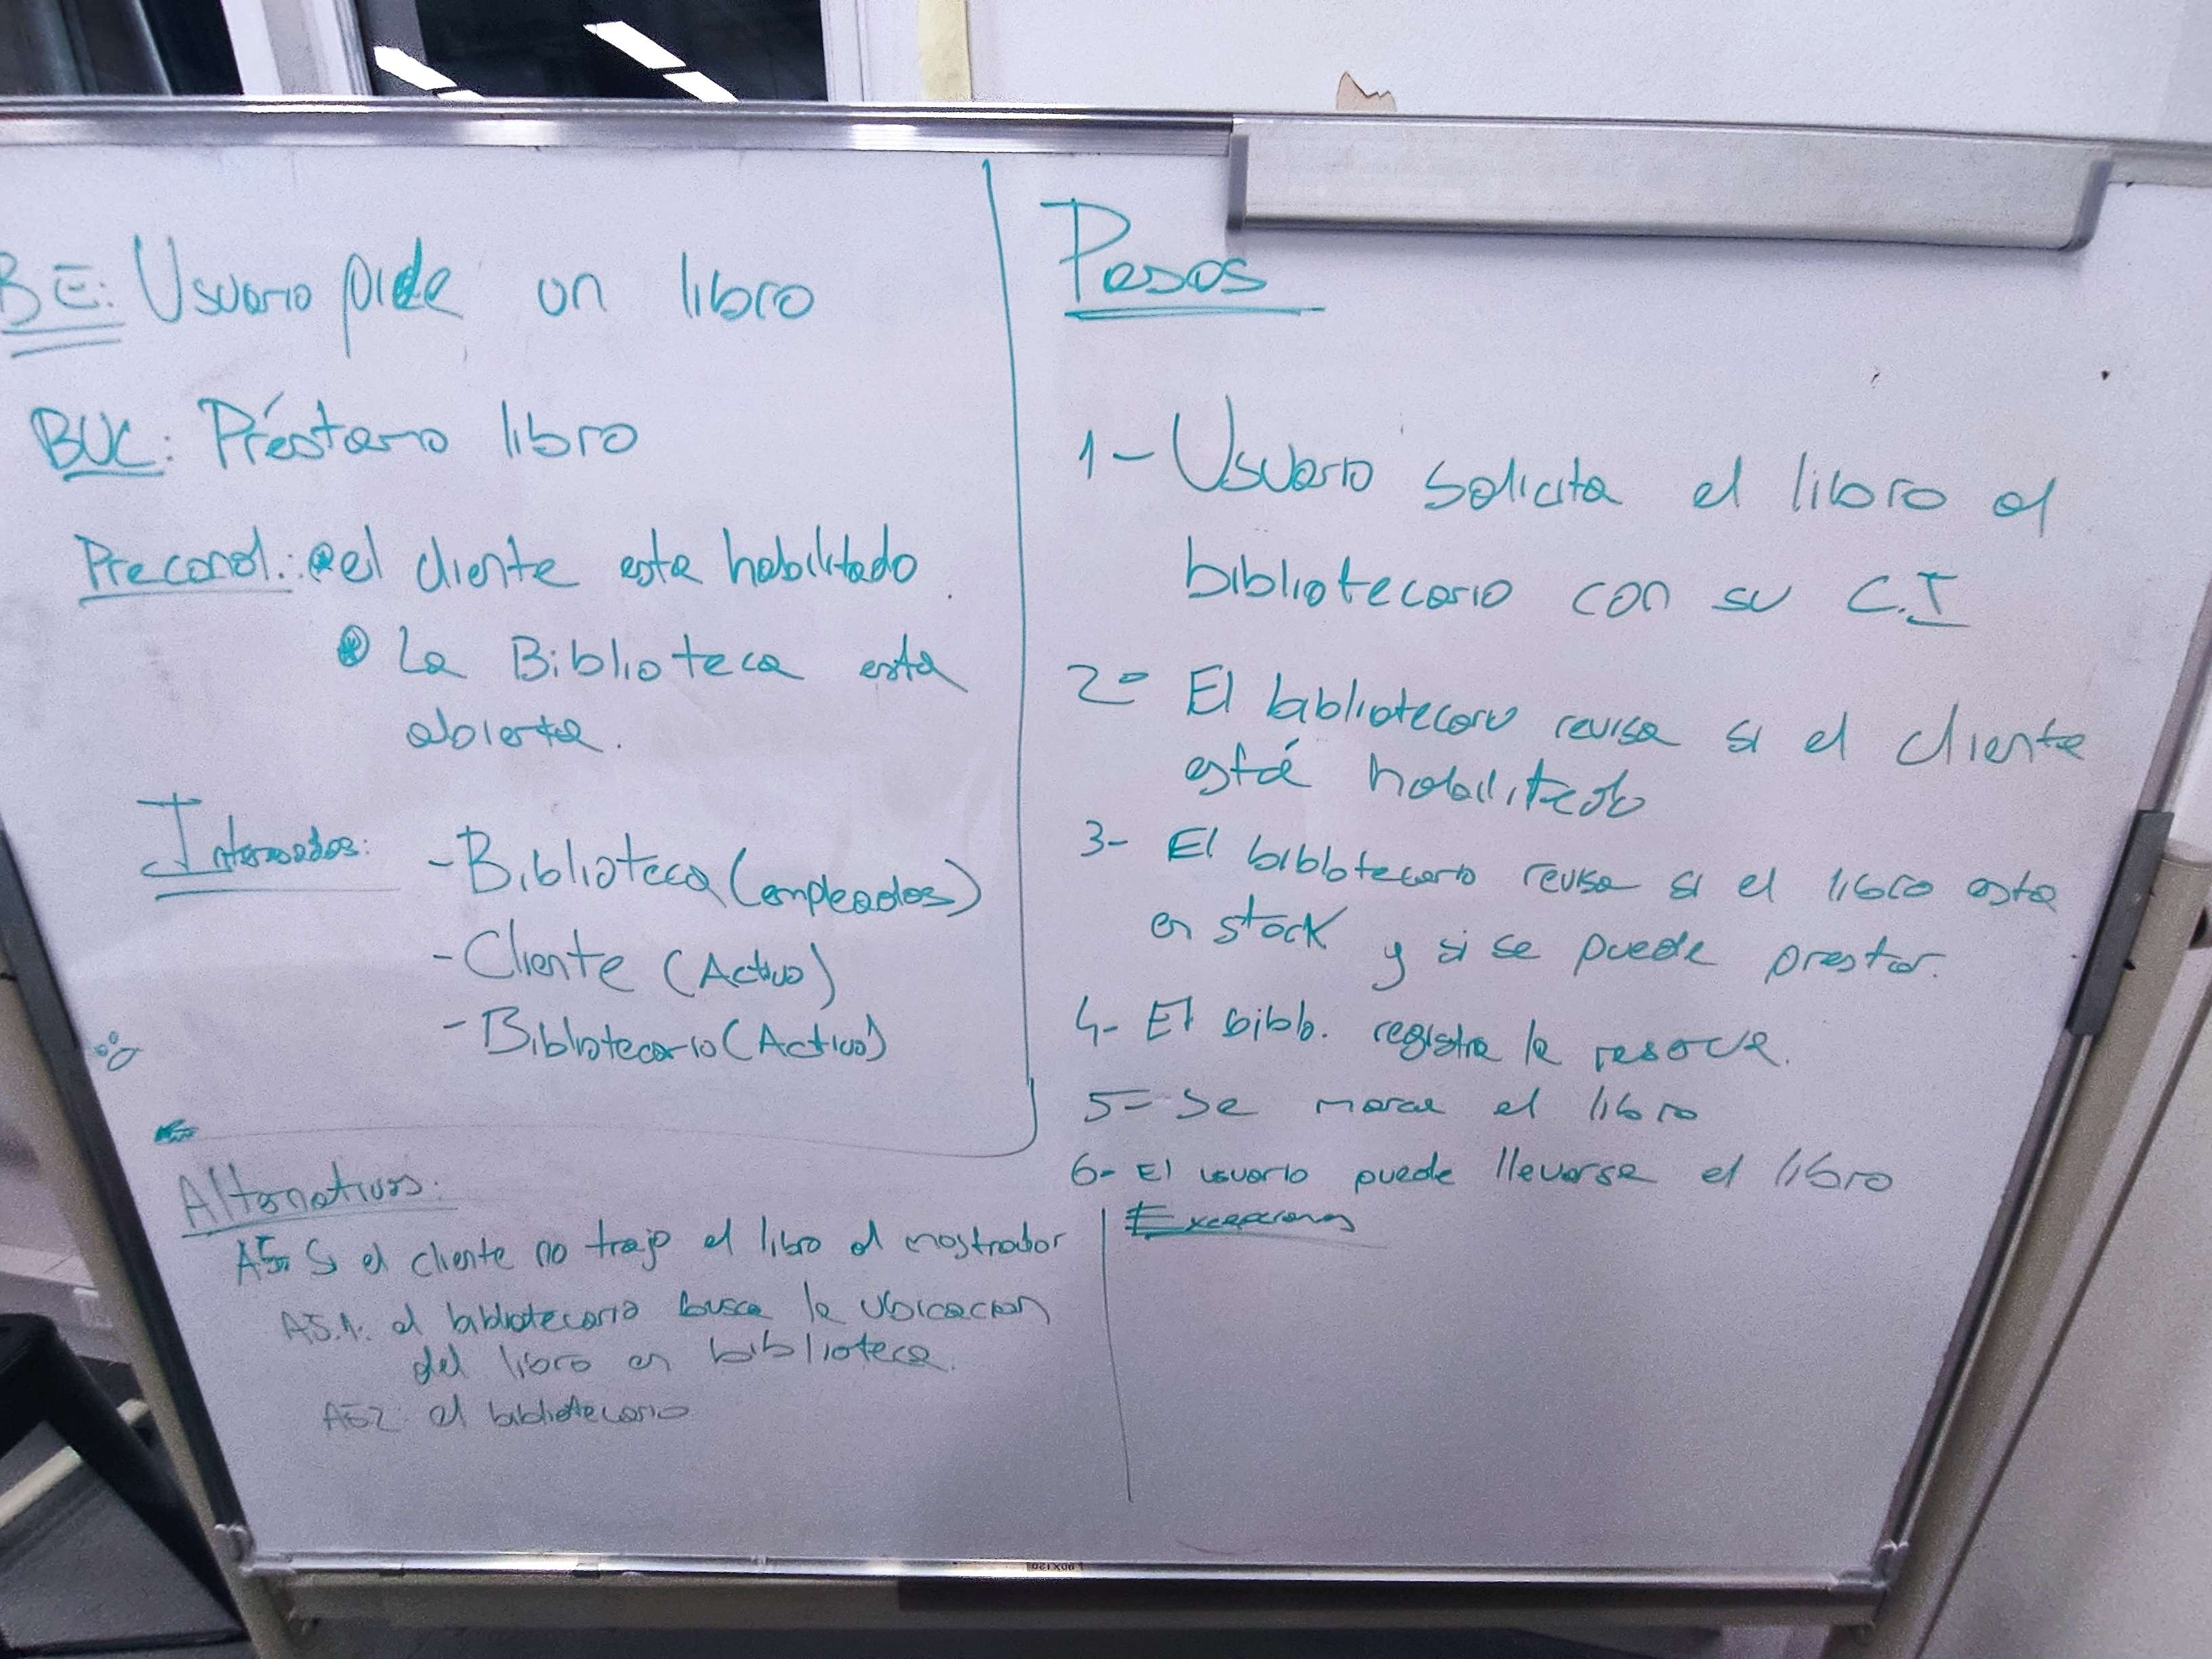 BE: Usuario pide un libro
BUC: Préstamo libro
Precond.: el cliente esta habilitado
La Biblioteca esta
abierta.
Interesados: - Biblioteca (empleados)
- Cliente (Activo)
- Bibliotecario (Activo)
Alternativas:
A5. Si el cliente no trajo el libro al mostrador
A5.1. el bibliotecario busca la ubicacion
del libro en biblioteca.
A5.2 el bibliotecario
Pasos
1- Usuario solicita el libro al
bibliotecario con su C.I
2- El bibliotecario revisa si el cliente
está habilitado
3- El bibliotecario revisa si el libro esta
en stock y si se puede prestar.
4- El biblo. registra la reserva.
5- Se marca el libro
6- El usuario puede llevarse el libro
Excepciones